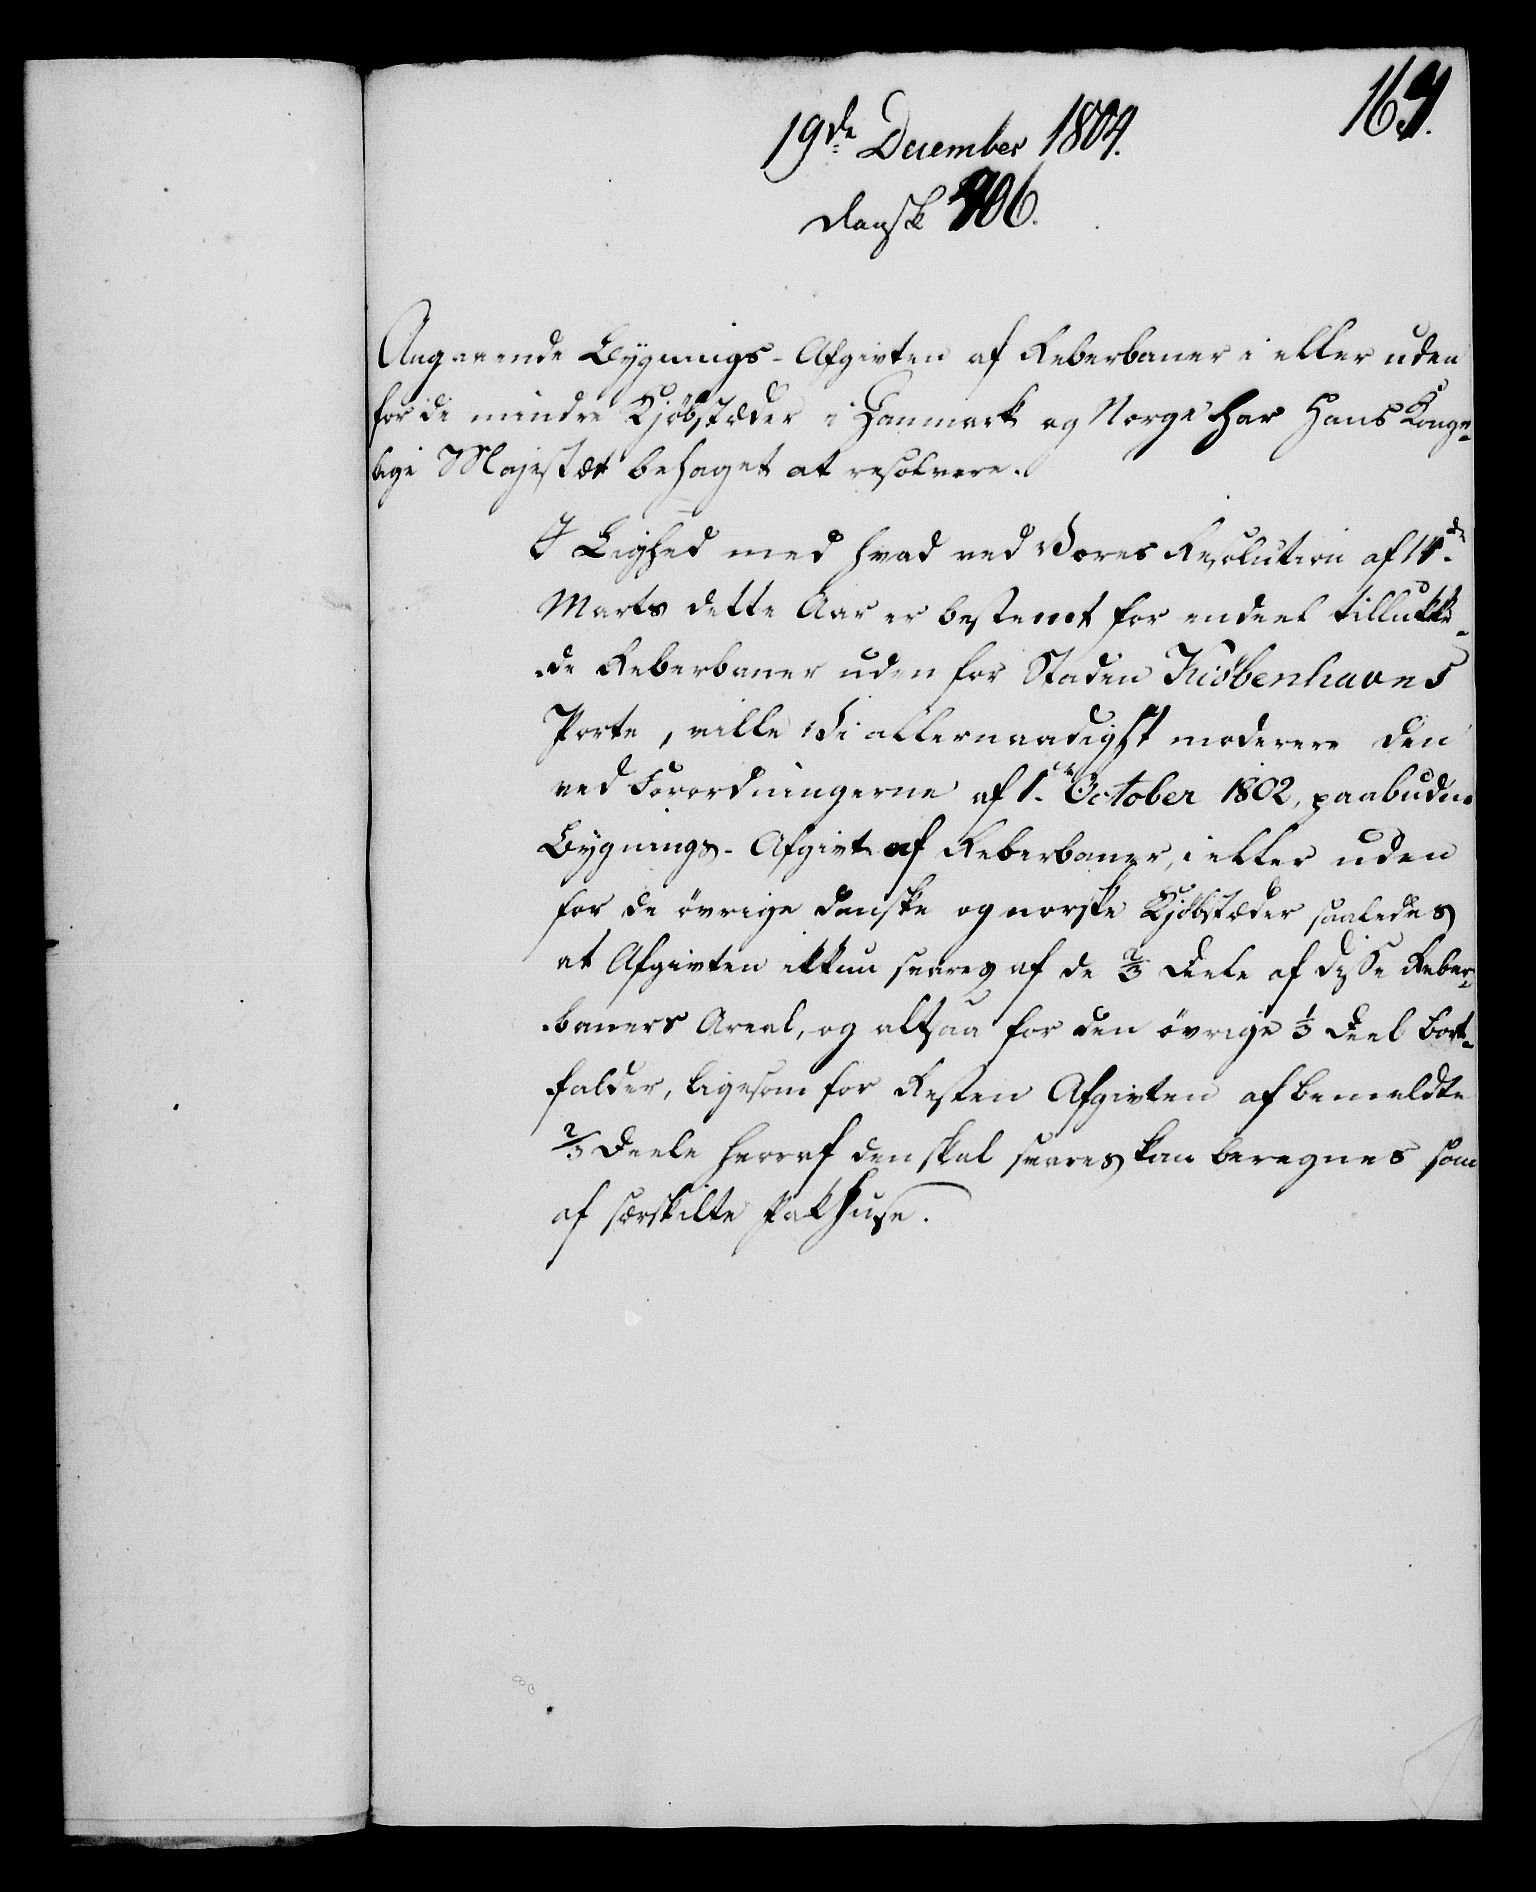 164.
19de December 1804.
dansk 906.
Angaaende Bygnings-Afgivten af Reberbaner i eller uden
for de mindre Kjøbstæder i Danmark og Norge har Hans Konge-
lige Majestæt behaget at resolvere.
I Liighed med hvad ved Vores Resolution af 14de
Marts dette Aar er bestemt for endeel tillukke-
de Reberbaner uden for Staden Kiøbenhavns
Porte, ville Vi allernaadigst moderere den
ved Forordningerne af 1te October 1802, paabudne
Bygnings-Afgivt af Reberbaner, i eller uden
for de övrige danske og norske Kjøbstæder saaledes
at Afgivten ikkun svares af de 2/3 Deele af disse Reber-
baners Areal, og altsaa for den övrige 1/3 Deel bort-
falder, ligesom for Resten Afgivten af bemeldte
2/3 Deele hvoraf den skal svares kan beregnes som
af særskilte Pakhuse.